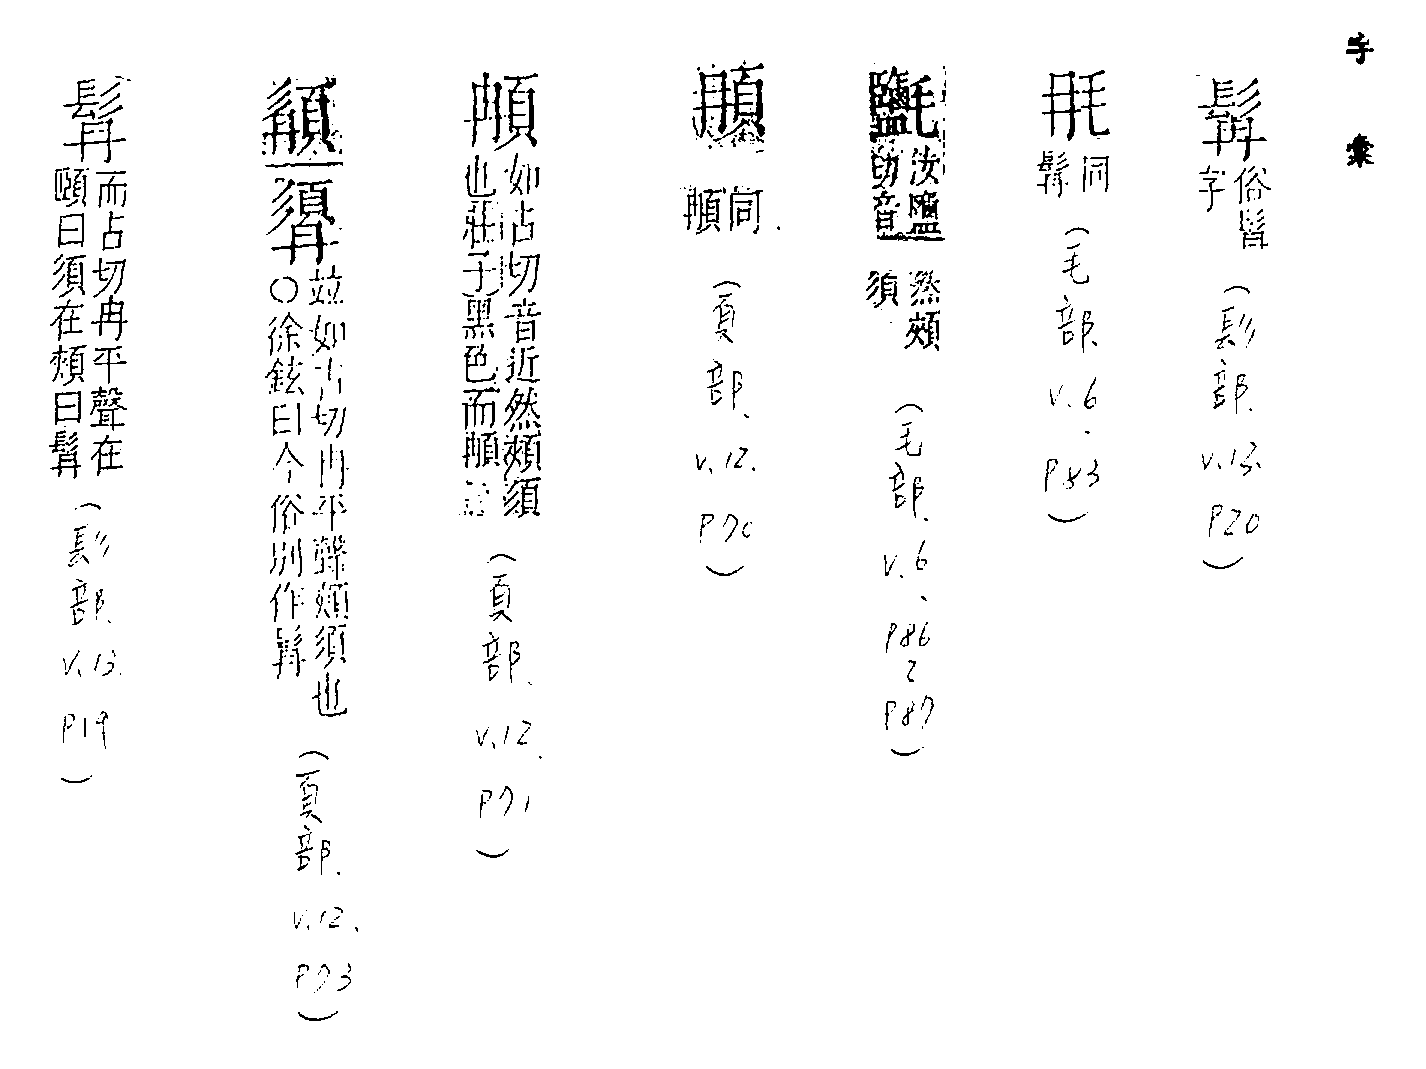 字彙
髯 俗髥字 (髟部. v.13. P20)
𣬛 同髥 (毛部. v.6. P83)
汝鹽切音然頰須 (毛部. v.6. P86 P87)
同䫇. (頁部. v.12. P70)
䫇 如占切音近然頰須也莊子黑色而䫇 (頁部. v.12. P71)
竝如占切冉平聲頰須也〇徐鉉曰今俗別作髥 (頁部. v.12. P73)
髯 而占切冉平聲在頤曰須在頰曰髯 (髟部. v.13. P19)